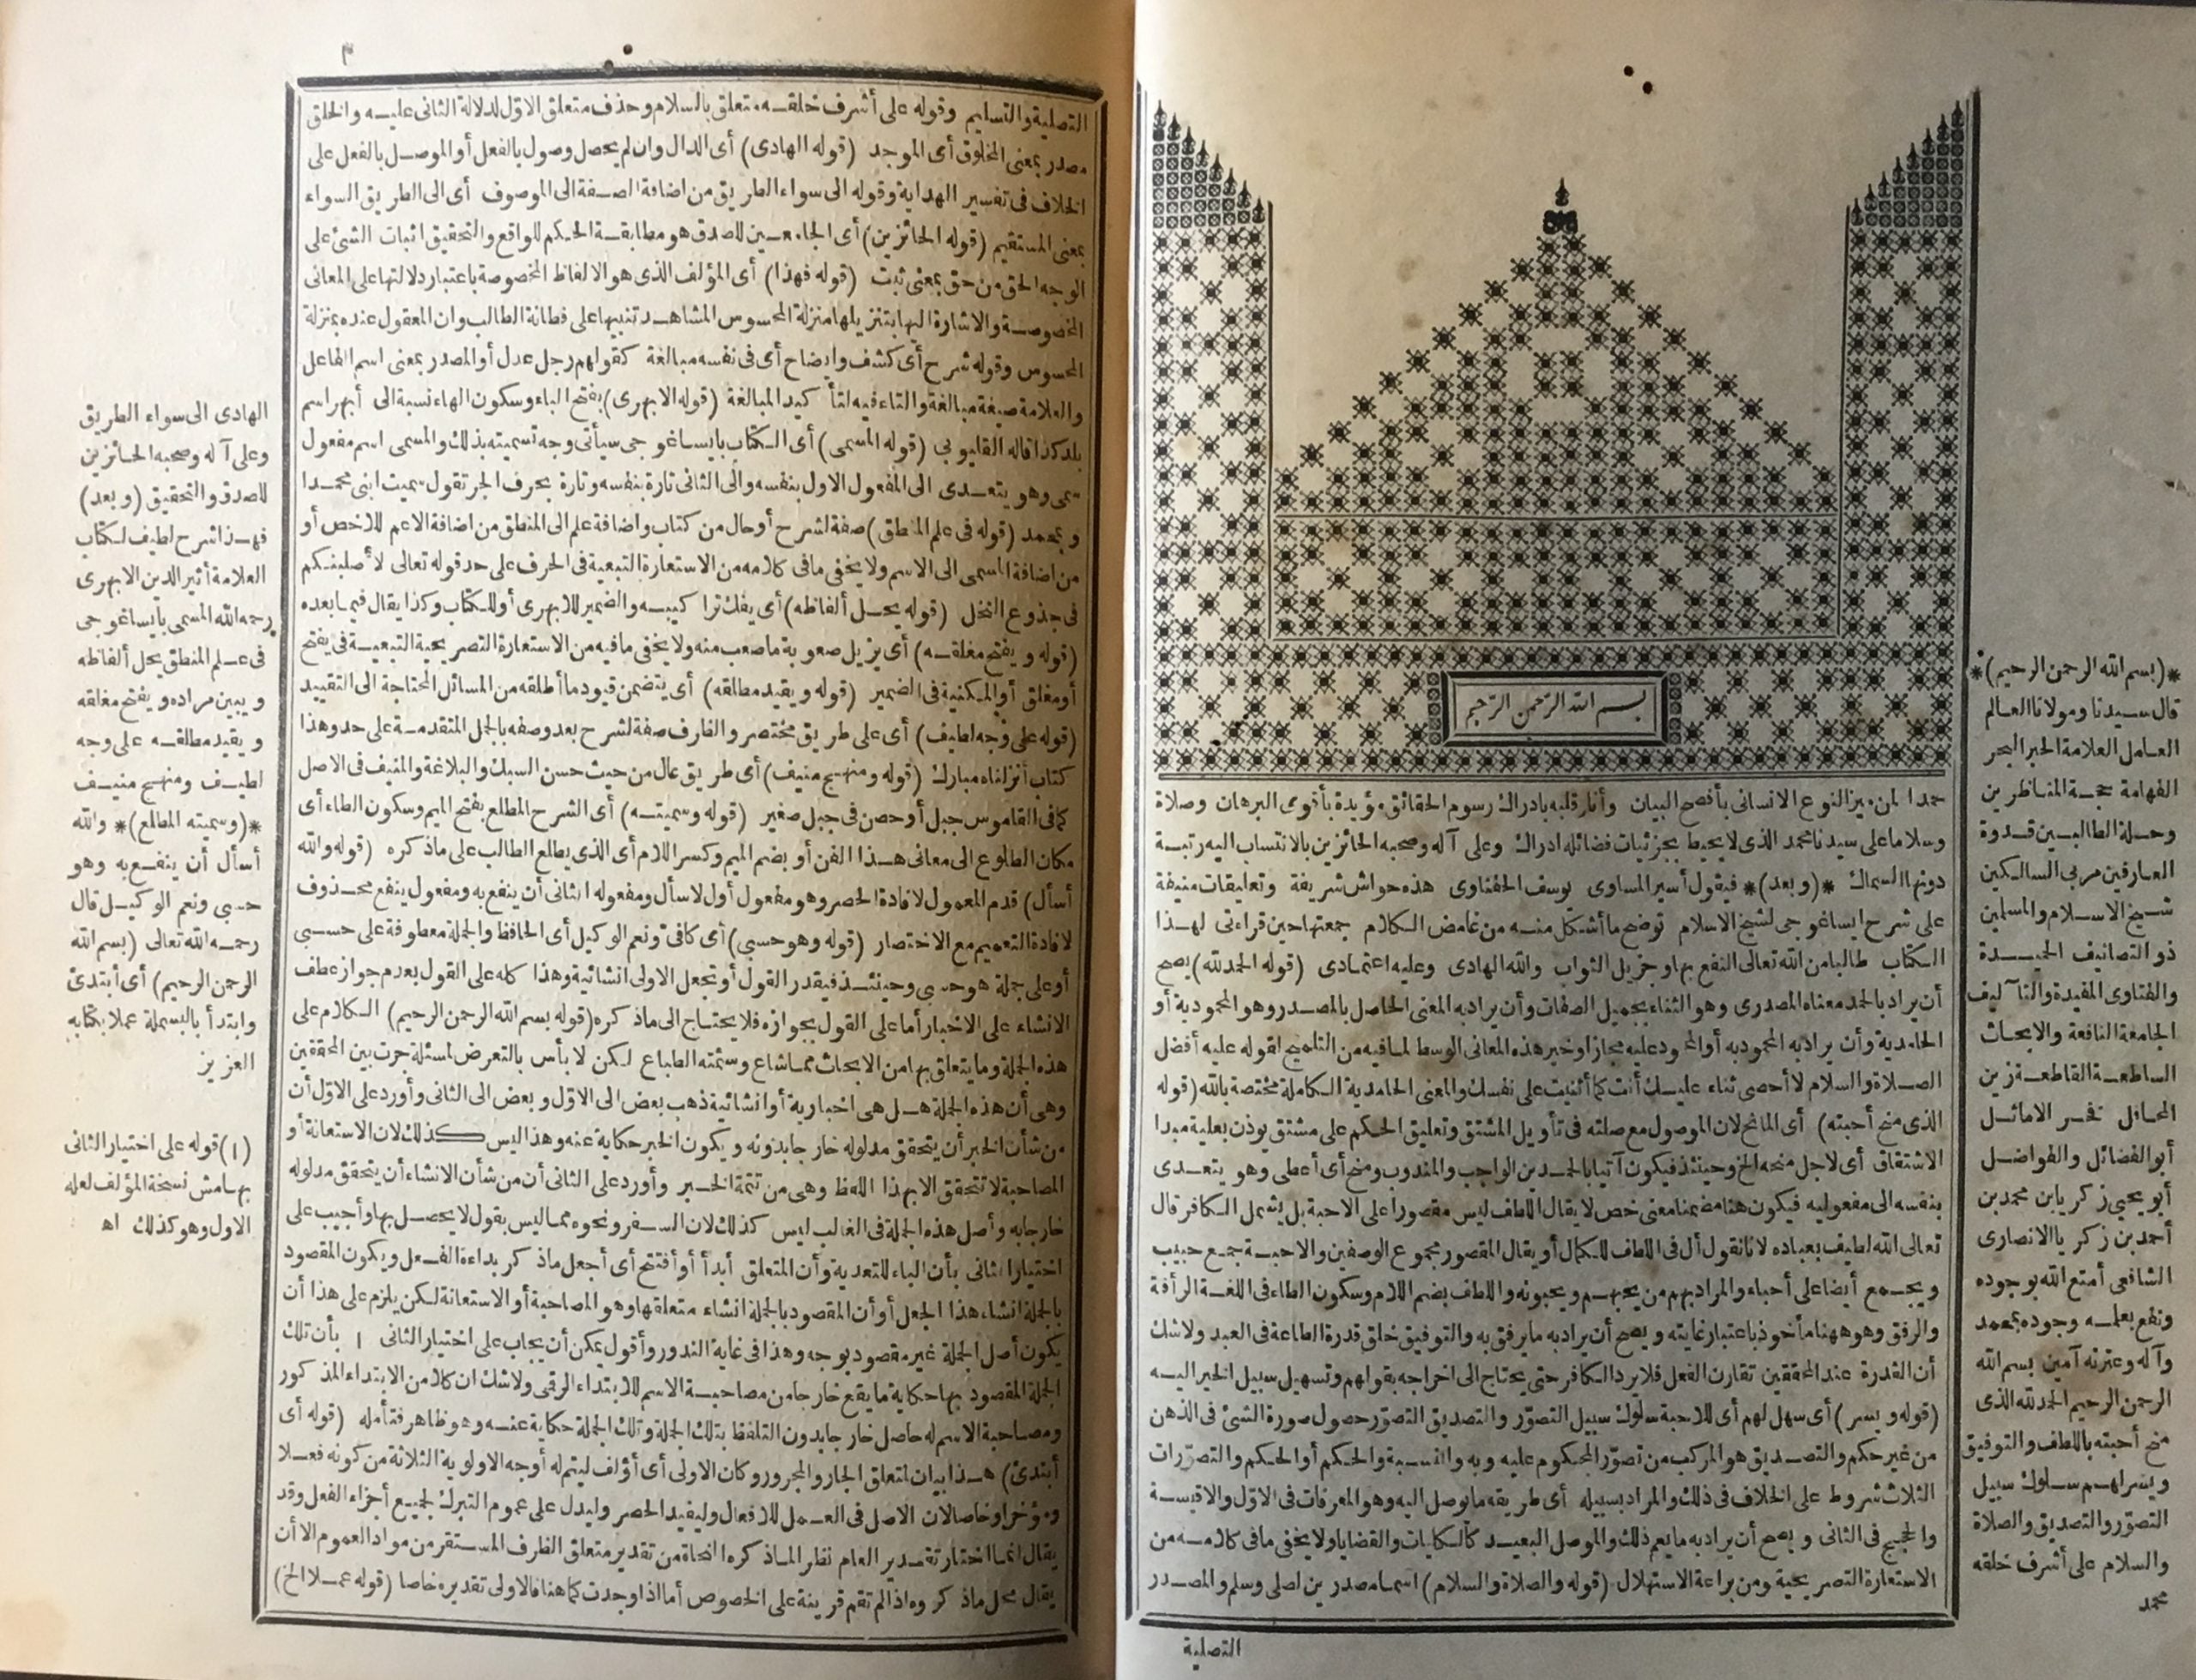 بسم الله الرحمن الرحيم
حمدا لمن ميز النوع الانسانى بأفصح البيان وأنار قلبه بادراك رسوم الحقائق مؤيدة بأقومى البرهان وصلاة
وسلاما على سيدنا محمد الذى لا يحيط بجزئيات فضائله ادراك وعلى آله وصحبه الحائزين بالانتساب اليه رتبة
دونها السماك *(وبعد)* فيقول أسير المساوى يوسف الحفناوى هذه حواش شريفة وتعليقات منيفة
على شرح ايساغوجى لشيخ الاسلام توضح ما أشكل منه من غامض الكلام جمعتها حين قراءتى لهذا
الكتاب طالبا من الله تعالى النفع بها وجزيل الثواب والله الهادى وعليه اعتمادى (قوله الحمد لله) يصح
أن يراد بالحمد معناه المصدرى وهو الثناء بجميل الصفات وأن يراد به المعنى الحاصل بالمصدر وهو المحمودية أو
الحامدية وأن يراد به المحمود به أو المحمود عليه مجازا وخير هذه المعانى الوسط لما فيه من التلميح لقوله عليه أفضل
الصلاة والسلام لا أحصى ثناء عليك أنت كما أثنيت على نفسك والمعنى الحامدية الكاملة مختصة بالله (قوله
الذى منح أحبته) أى المانح لان الموصول مع صلته فى تأويل المشتق وتعليق الحكم على مشتق يؤذن بعلية مبدا
الاشتقاق أى لاجل منحه الخ وحينئذ فيكون آتيا بالحمدين الواجب والمندوب ومنح أى أعطى وهو يتعدى
بنفسه الى مفعوليه فيكون هنا مضمنا معنى خص لا يقال اللطف ليس مقصورا على الاحبة بل يشمل الكافر قال
تعالى الله لطيف بعباده لانا نقول أل فى اللطف للكمال أو يقال المقصور مجموع الوصفين والاحبة جمع حبيب
ويجمع أيضا على أحباء والمراد بهم من يحبهم ويحبونه واللطف بضم اللام وسكون الطاء فى اللغة الرأفة
والرفق وهو ههنا مأخوذ باعتبار غايته ويصح أن يراد به ما يرفق به والتوفيق خلق قدرة الطاعة فى العبد ولا شك
أن القدرة عند المحققين تقارن الفعل فلا يرد الكافر حتى يحتاج الى اخراجه بقولهم وتسهيل سبيل الخير اليه
(قوله ويسر) أى سهل لهم أى للاحبة سلوك سبيل التصوّر والتصديق التصوّر حصول صورة الشئ فى الذهن
من غير حكم والتصديق هو المركب من تصوّر المحكوم عليه وبه والنسبة والحكم أو الحكم والتصوّرات
الثلاث شروط على الخلاف فى ذلك والمراد بسبيله أى طريقه ما يوصل اليه وهو المعرفات فى الاوّل والاقيسة
والحجج فى الثانى ويصح أن يراد به ما يعم ذلك والموصل البعيد كالكليات والقضايا ولا يخفى ما فى كلامه من
الاستعارة التصريحية ومن براعة الاستهلال (قوله والصلاة والسلام) اسما مصدرين لصلى وسلم والمصدر
التصلية
*(بسم الله الرحمن الرحيم)*
قال سيدنا ومولانا العالم
العامل العلامة الحبر البحر
الفهامة حجة المناظرين
وحلة الطالبين قدوة
العارفين مربى السالكين
شيخ الاسلام والمسلمين
ذو التصانيف الحميدة
والفتاوى المفيدة والتآليف
الجامعة النافعة والابحاث
الساطعة القاطعة زين
المحافل فخر الاماثل
أبو الفضائل والفواضل
أبو يحيى زكريا بن محمد بن
أحمد بن زكريا الانصارى
الشافعى أمتع الله بوجوده
ونفع بعلمه وجوده بمحمد
وآله وعترته آمين بسم الله
الرحمن الرحيم الحمد لله الذى
منح أحبته باللطف والتوفيق
ويسر لهم سلوك سبيل
التصوّر والتصديق والصلاة
والسلام على أشرف خلقه
محمد
٣
التصلية والتسليم وقوله على أشرف خلقه متعلق بالسلام وحذف متعلق الاوّل لدلالة الثانى عليه والخلق
مصدر بمعنى المخلوق أى الموجد (قوله الهادى) أى الدال وان لم يحصل وصول بالفعل أو الموصل بالفعل على
الخلاف فى تفسير الهداية وقوله الى سواء الطريق من اضافة الصفة الى الموصوف أى الى الطريق السواء
بمعنى المستقيم (قوله الحائزين) أى الجامعين للصدق هو مطابقة الحكم للواقع والتحقيق اثبات الشئ على
الوجه الحق من حق بمعنى ثبت (قوله فهذا) أى المؤلف الذى هو الالفاظ المخصوصة باعتبار دلالتها على المعانى
المخصوصة والاشارة اليها بتنزيلها منزلة المحسوس المشاهد تنبيها على فطانة الطالب وان المعقول عنده بمنزلة
المحسوس وقوله شرح أى كشف وايضاح أى فى نفسه مبالغة كقولهم رجل عدل أو المصدر بمعنى اسم الفاعل
والعلامة صيغة مبالغة والتاء فيه لتأكيد المبالغة (قوله الابهرى) بفتح الباء وسكون الهاء نسبة الى أبهر اسم
بلد كذا قاله القليوبى (قوله المسمى) أى الكتاب بايساغوجى سيأتى وجه تسميته بذلك والمسمى اسم مفعول
سمى وهو يتعدى الى المفعول الاول بنفسه والى الثانى تارة بنفسه وتارة بحرف الجر تقول سميت ابنى محمدا
وبمحمد (قوله فى علم المنطق) صفة لشرح أو حال من كتاب واضافة علم الى المنطق من اضافة الاعم للاخص أو
من اضافة المسمى الى الاسم ولا يخفى ما فى كلامه من الاستعارة التبعية فى الحرف على حد قوله تعالى لأصلبنكم
فى جذوع النخل (قوله يحل ألفاظه) أى يفك تراكيبه والضمير للابهرى أو للكتاب وكذا يقال فيما بعده
(قوله ويفتح مغلقه) أى يزيل صعوبة ما صعب منه ولا يخفى ما فيه من الاستعارة التصريحية التبعية فى يفتح
أو مغلق أو المكنية فى الضمير (قوله ويقيد مطلقه) أى يتضمن قيود ما أطلقه من المسائل المحتاجة الى التقييد
(قوله على وجه لطيف) أى على طريق مختصر والظرف صفة لشرح بعد وصفه بالجمل المتقدمة على حد وهذا
كتاب أنزلناه مبارك (قوله ومنهج منيف) أى طريق عال من حيث حسن السبك والبلاغة والمنيف فى الاصل
كما فى القاموس جبل أو حصن فى جبل صغير (قوله وسميته) أى الشرح المطلع بفتح الميم وسكون الطاء أى
مكان الطلوع الى معانى هذا الفن أو بضم الميم وكسر اللام أى الذى يطلع الطالب على ما ذكره (قوله والله
أسأل) قدم المعمول لافادة الحصر وهو مفعول أول لاسأل ومفعوله الثانى أن ينفع به ومفعول ينفع محذوف
لافادة التعميم مع الاختصار (قوله وهو حسبى) أى كافى ونعم الوكيل أى الحافظ والجملة معطوفة على حسبى
أو على جملة هو حسبى وحينئذ فيقدر القول أو تجعل الاولى انشائية وهذا كله على القول بعدم جواز عطف
الانشاء على الاخبار أما على القول بجوازه فلا يحتاج الى ما ذكره (قوله بسم الله الرحمن الرحيم) الكلام على
هذه الجملة وما يتعلق بها من الابحاث مما شاع وسئمته الطباع لكن لا بأس بالتعرض لمسئلة جرت بين المحققين
وهى أن هذه الجملة هل هى اخبارية أو انشائية ذهب بعض الى الاوّل وبعض الى الثانى وأورد على الاوّل أن
من شأن الخبر أن يتحقق مدلوله خارجا بدونه ويكون الخبر حكاية عنه وهذا ليس كذلك لان الاستعانة أو
المصاحبة لا تتحقق الا بهذا اللفظ وهى من تتمة الخبر وأورد على الثانى أن من شأن الانشاء أن يتحقق مدلوله
خارجا به وأصل هذه الجملة فى الغالب ليس كذلك لان السفر ونحوه مما ليس بقول لا يحصل بها وأجيب على
اختيار الثانى بأن الباء للتعدية وأن المتعلق أبدأ أو أفتتح أى أجعل ما ذكر بداءة الفعل ويكون المقصود
بالجملة انشاء هذا الجعل أو أن المقصود بالجملة انشاء متعلقها وهو المصاحبة أو الاستعانة لكن يلزم على هذا أن
يكون أصل الجملة غير مقصود بوجه وهذا فى غاية الندور وأقول يمكن أن يجاب على اختيار الثانى ١ بأن تلك
الجملة المقصود بها حكاية ما يقع خارجا من مصاحبة الاسم للابتداء الرقمى ولا شك ان كلا من الابتداء المذكور
ومصاحبة الاسم له حاصل خارجا بدون التلفظ بتلك الجملة وتلك الجملة حكاية عنه وهو ظاهر فتأمله (قوله أى
أبتدئ) هذا بيان لمتعلق الجار والمجرور وكان الاولى أى أؤلف ليتم له أوجه الاولوية الثلاثة من كونه فعلا
ومؤخرا وخاصا لان الاصل فى العمل للافعال وليفيد الحصر وليدل على عموم التبرك لجميع أجزاء الفعل وقد
يقال انما اختار تقدير العام نظرا لما ذكره النحاة من تقدير متعلق الظرف المستقر من مواد العموم الا أن
يقال محل ما ذكروه اذا لم تقم قرينة على الخصوص أما اذا وجدت كما هنا فالاولى تقديره خاصا (قوله عملا الخ)
الهادى الى سواء الطريق
وعلى آله وصحبه الحائزين
للصدق والتحقيق (وبعد)
فهذا شرح لطيف لكتاب
العلامة أثير الدين الابهرى
رحمه الله المسمى بايساغوجى
فى علم المنطق يحل ألفاظه
ويبين مراده ويفتح مغلقه
ويقيد مطلقه على وجه
لطيف ومنهج منيف
*(وسميته المطلع)* والله
أسأل أن ينفع به وهو
حسبى ونعم الوكيل قال
رحمه الله تعالى (بسم الله
الرحمن الرحيم) أى أبتدئ
وابتدأ بالبسملة عملا بكتابه
العزيز
(١) قوله على اختيار الثانى
بهامش نسخة المؤلف لعله
الاول وهو كذلك اه